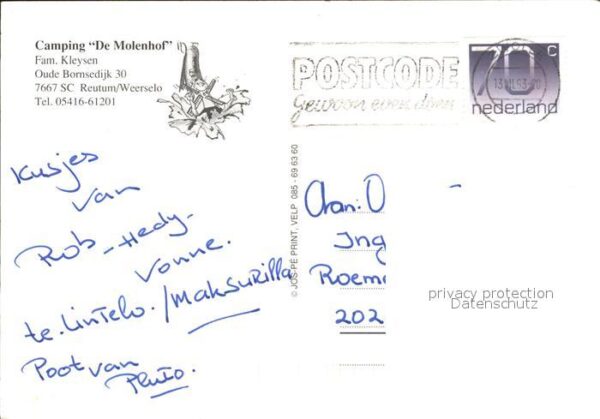 Camping "De Molenhof"
Fam. Kleysen
Oude Bornsedijk 30
7667 SC Reutum/Weerselo
Tel. 05416-61201
POSTCODE
gewoon even doen
70 c
nederland
Kusjes
van
Rob-Hedy-
Vonne.
te.Lintelo./Maksurilla
Poot van
Pluto.
© JOS-PE PRINT, VELP 085 - 69 63 60
Oran: O
Ing
Roem
202
privacy protection
Datenschutz